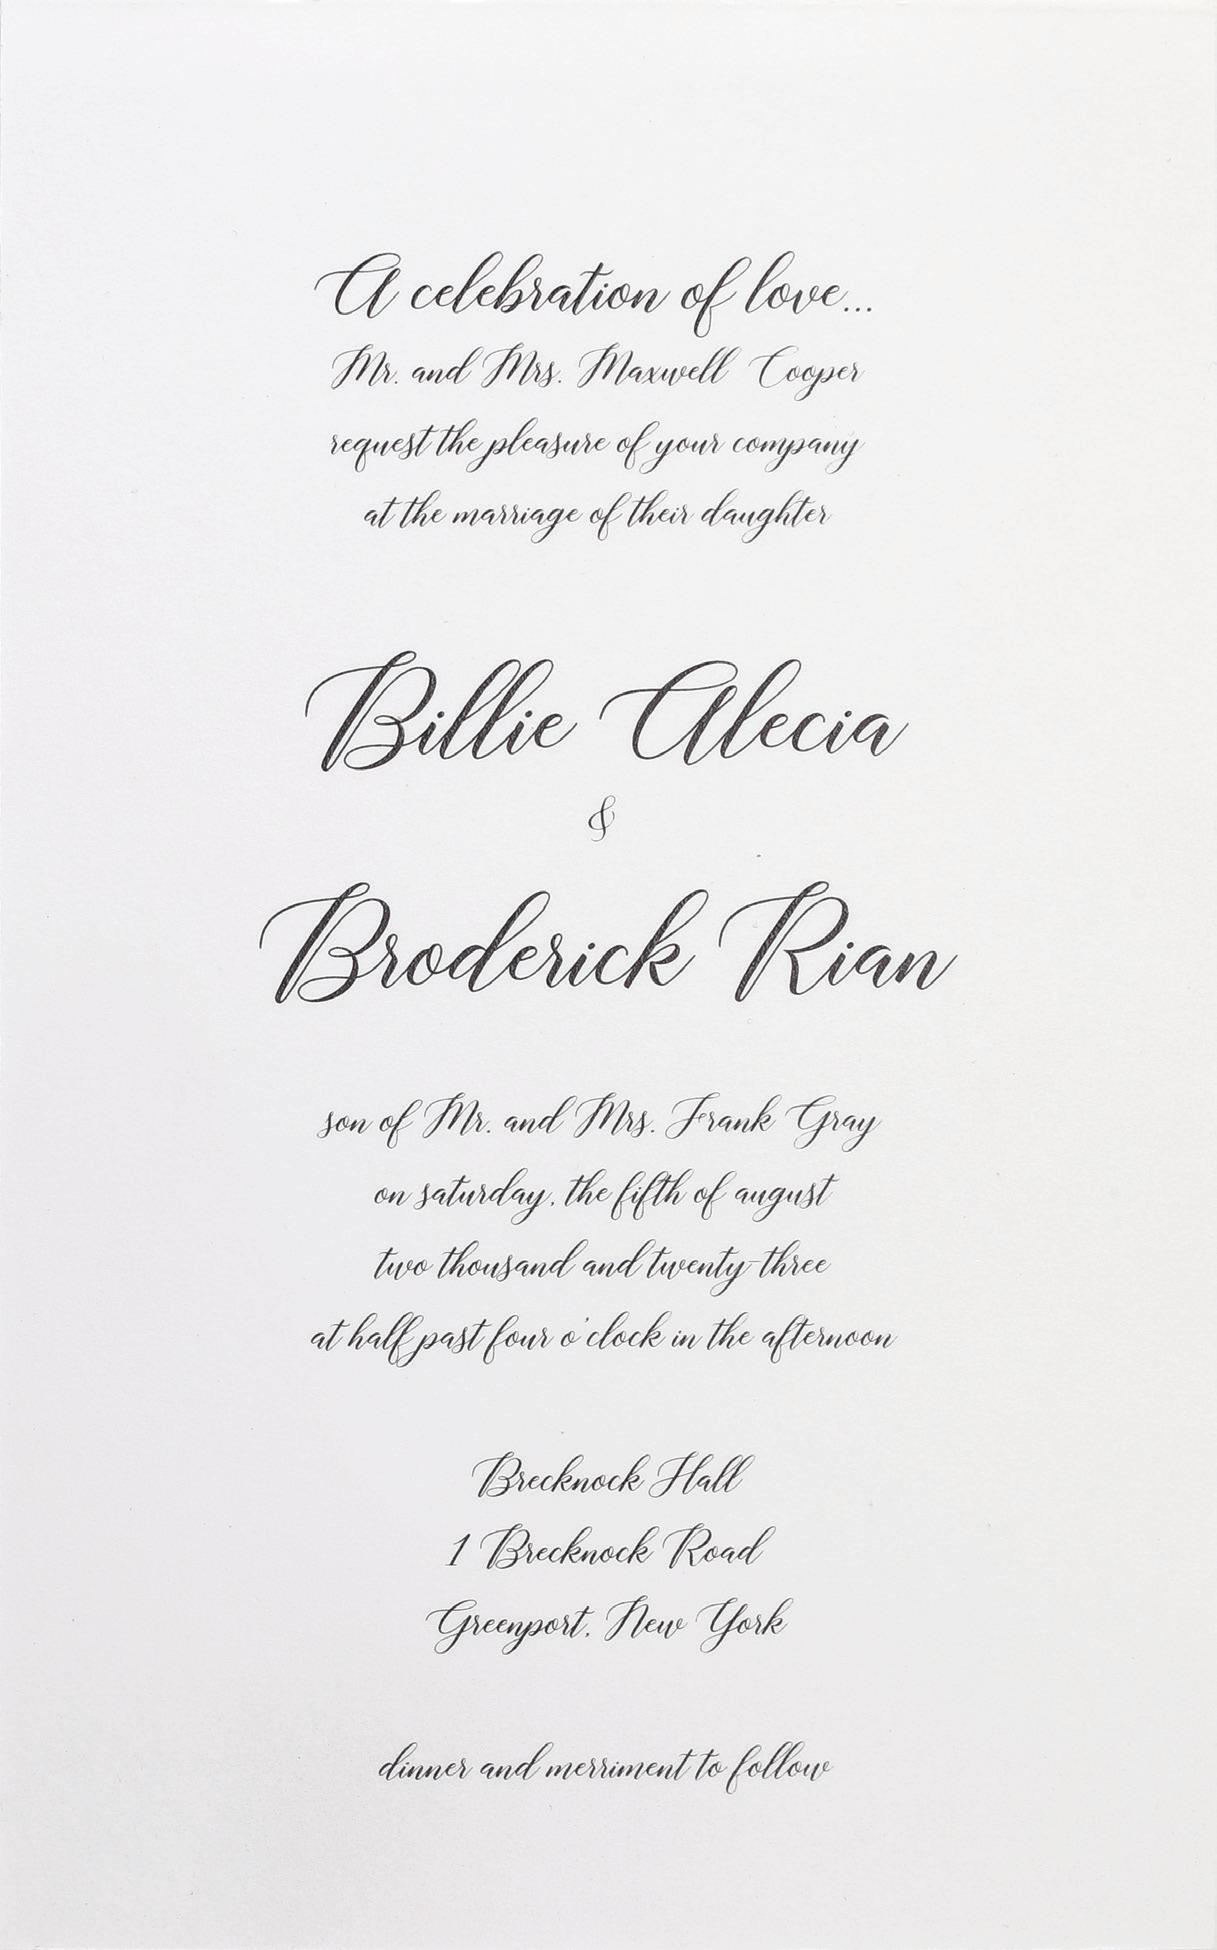 A celebration of love...
Mr. and Mrs. Maxwell Cooper
request the pleasure of your company
at the marriage of their daughter
Billie Alecia
&
Broderick Rian
son of Mr. and Mrs. Frank Gray
on saturday, the fifth of august
two thousand and twenty-three
at half past four o'clock in the afternoon
Brecknock Hall
1 Brecknock Road
Greenport, New York
dinner and merriment to follow